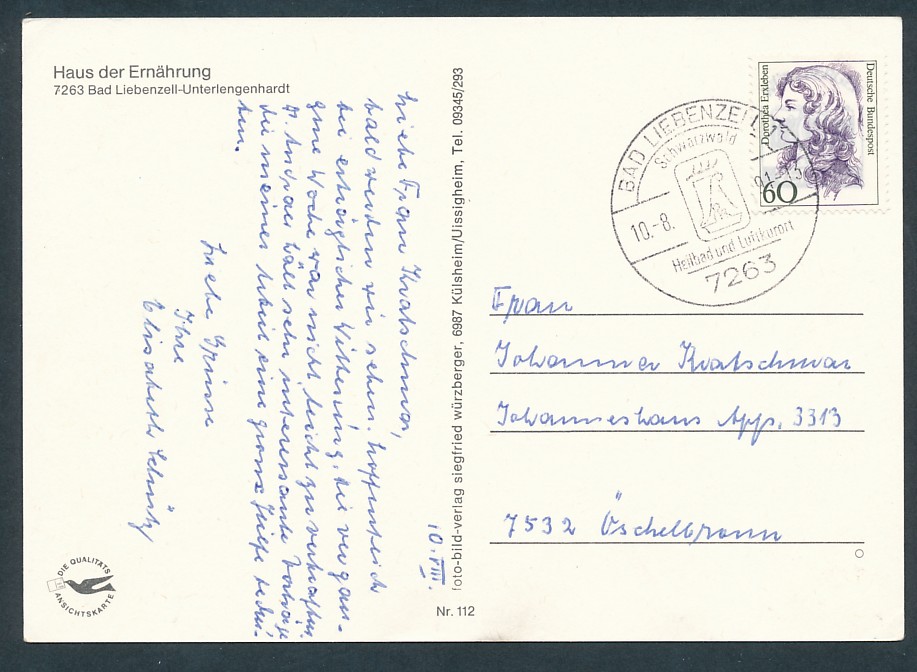 Haus der Ernährung
7263 Bad Liebenzell-Unterlengenhardt
10. VIII.
Liebe Frau Kratschmar,
bald werden wir sehen. Hoffentlich
bei erträglicher Witterung, die vergan-
gene Woche war nicht leicht zu verkraften.
Andreae hält sehr interessante Vorträge
die meiner Arbeit eine grosse Hilfe bedeu-
ten.
Liebe Grüsse
Ihre
Elisabeth
DIE QUALITÄTS
ANSICHTSKARTE
foto-bild-verlag siegfried würzberger, 6987 Külsheim/Uissigheim, Tel. 09345/293
Nr. 112
Deutsche Bundespost
Dorothea Erxleben
60
BAD LIEBENZELL
Schwarzwald
10.-8.
Heilbad und Luftkurort
7263
Frau
Johanna Kratschmar
Johanneshaus App. 3313
7532 Öschelbronn